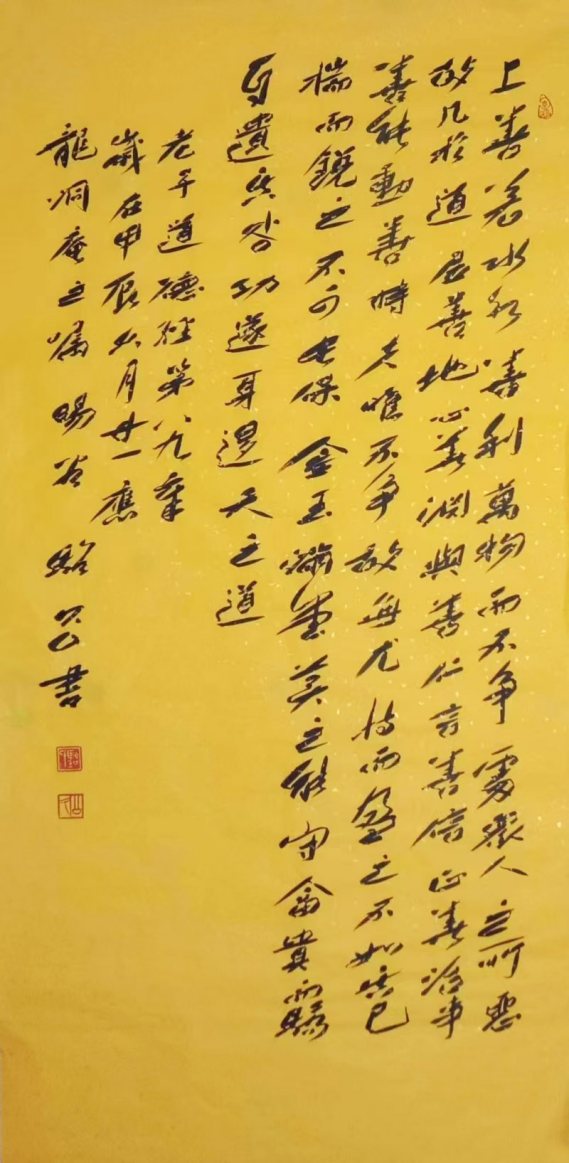 上善若水水善利萬物而不争處衆人之所惡
故几於道居善地心善淵與善仁言善信正善治事
善能動善時夫唯不争故無尤持而盈之不如其已
揣而鋭之不可長保金玉滿堂莫之能守富貴而驕
自遺其咎功遂身退天之道
老子道德經第八九章
歲在甲辰六月廿一應
龍洞庵之囑暘谷公書